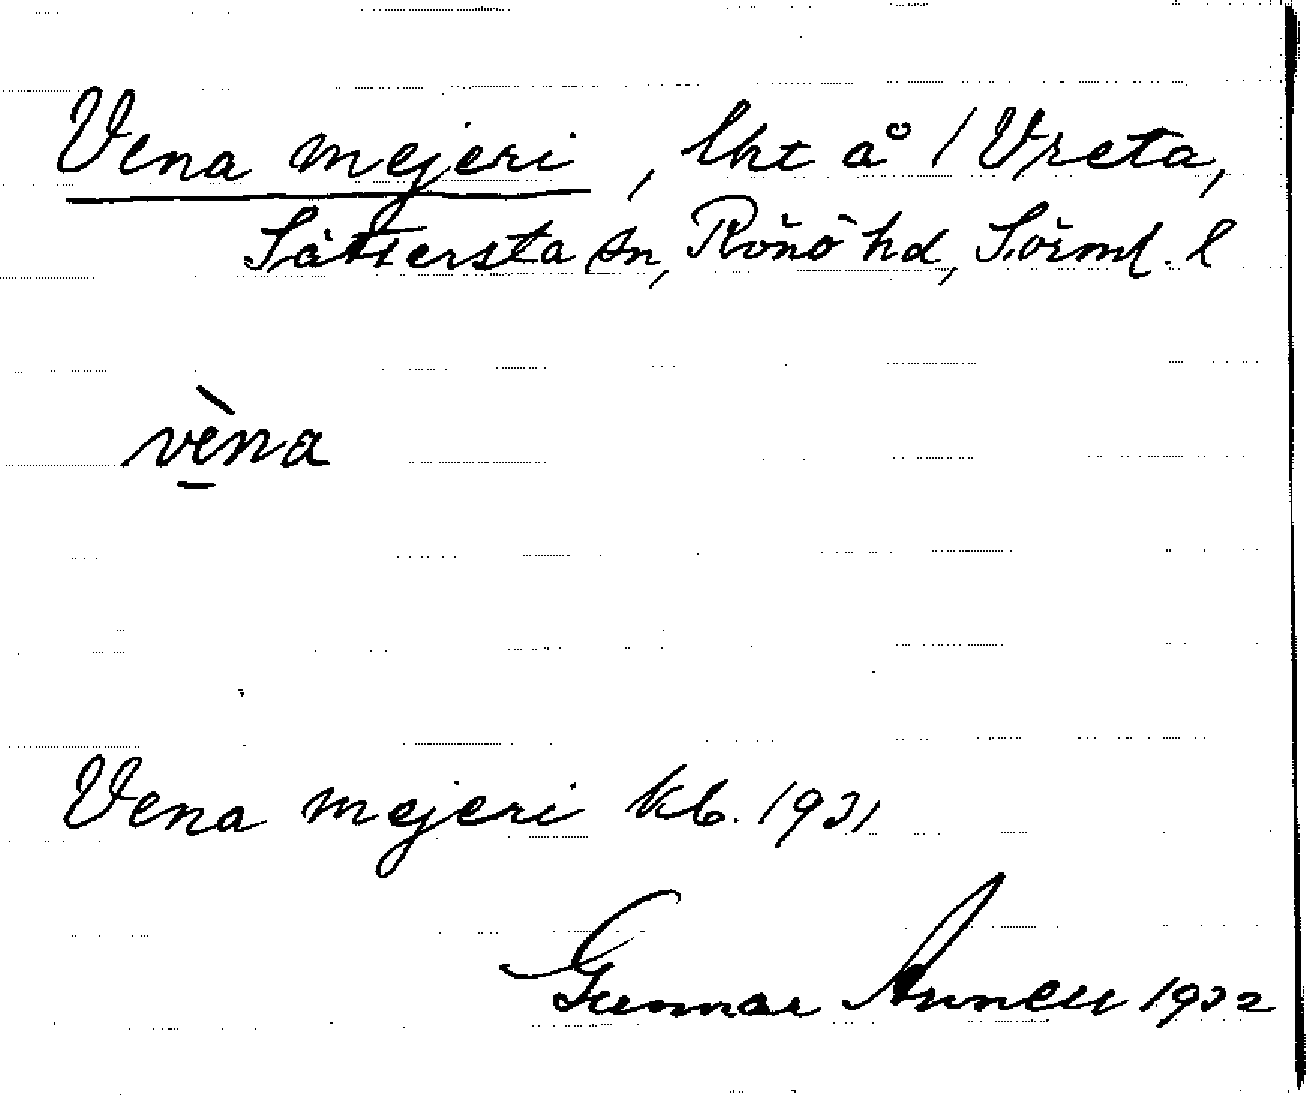 Vena mejeri, lht å 1 Vreta,
Sättersta sn, Rönö hd, Sörml. l
vèna
Vena mejeri kb. 1931
Gunnar 1932